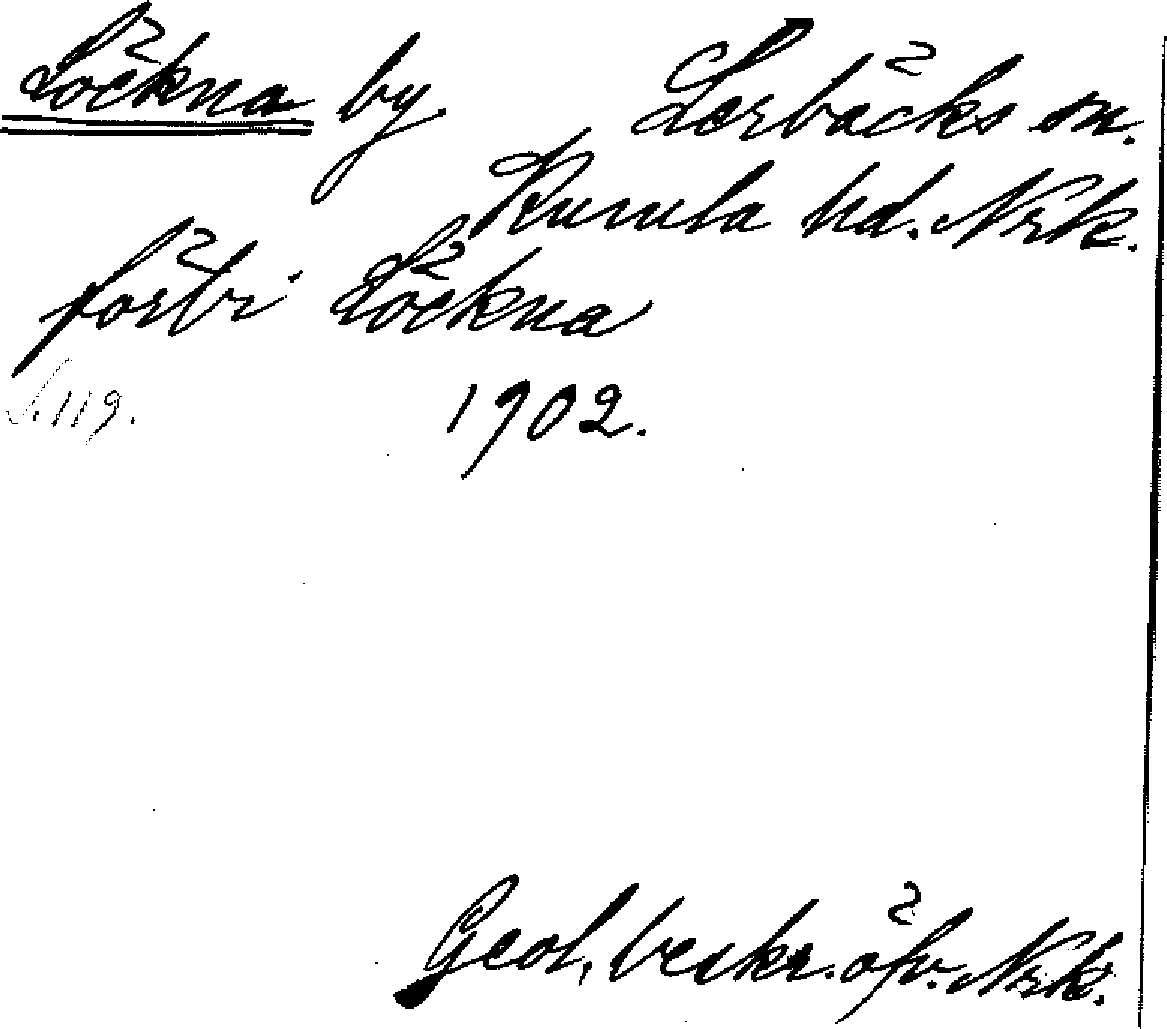 Löckna by. Lerbäcks sn.
Kumla hd. Nrk.
förbi Löckna
S. 119. 1902.
Geol. beskr. öfv. Nrk.